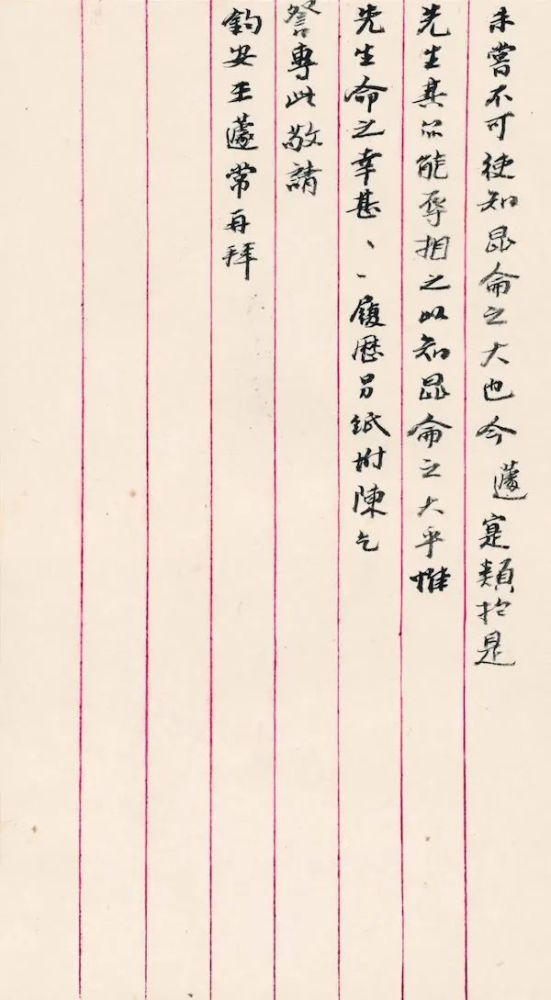 未嘗不可使知昆侖之大也今蘧寔類於是
先生其亦能辱相之以知昆侖之大乎惟
先生命之幸甚、、履歷另紙附陳乞
詧專此敬請
鈞安王蘧常再拜